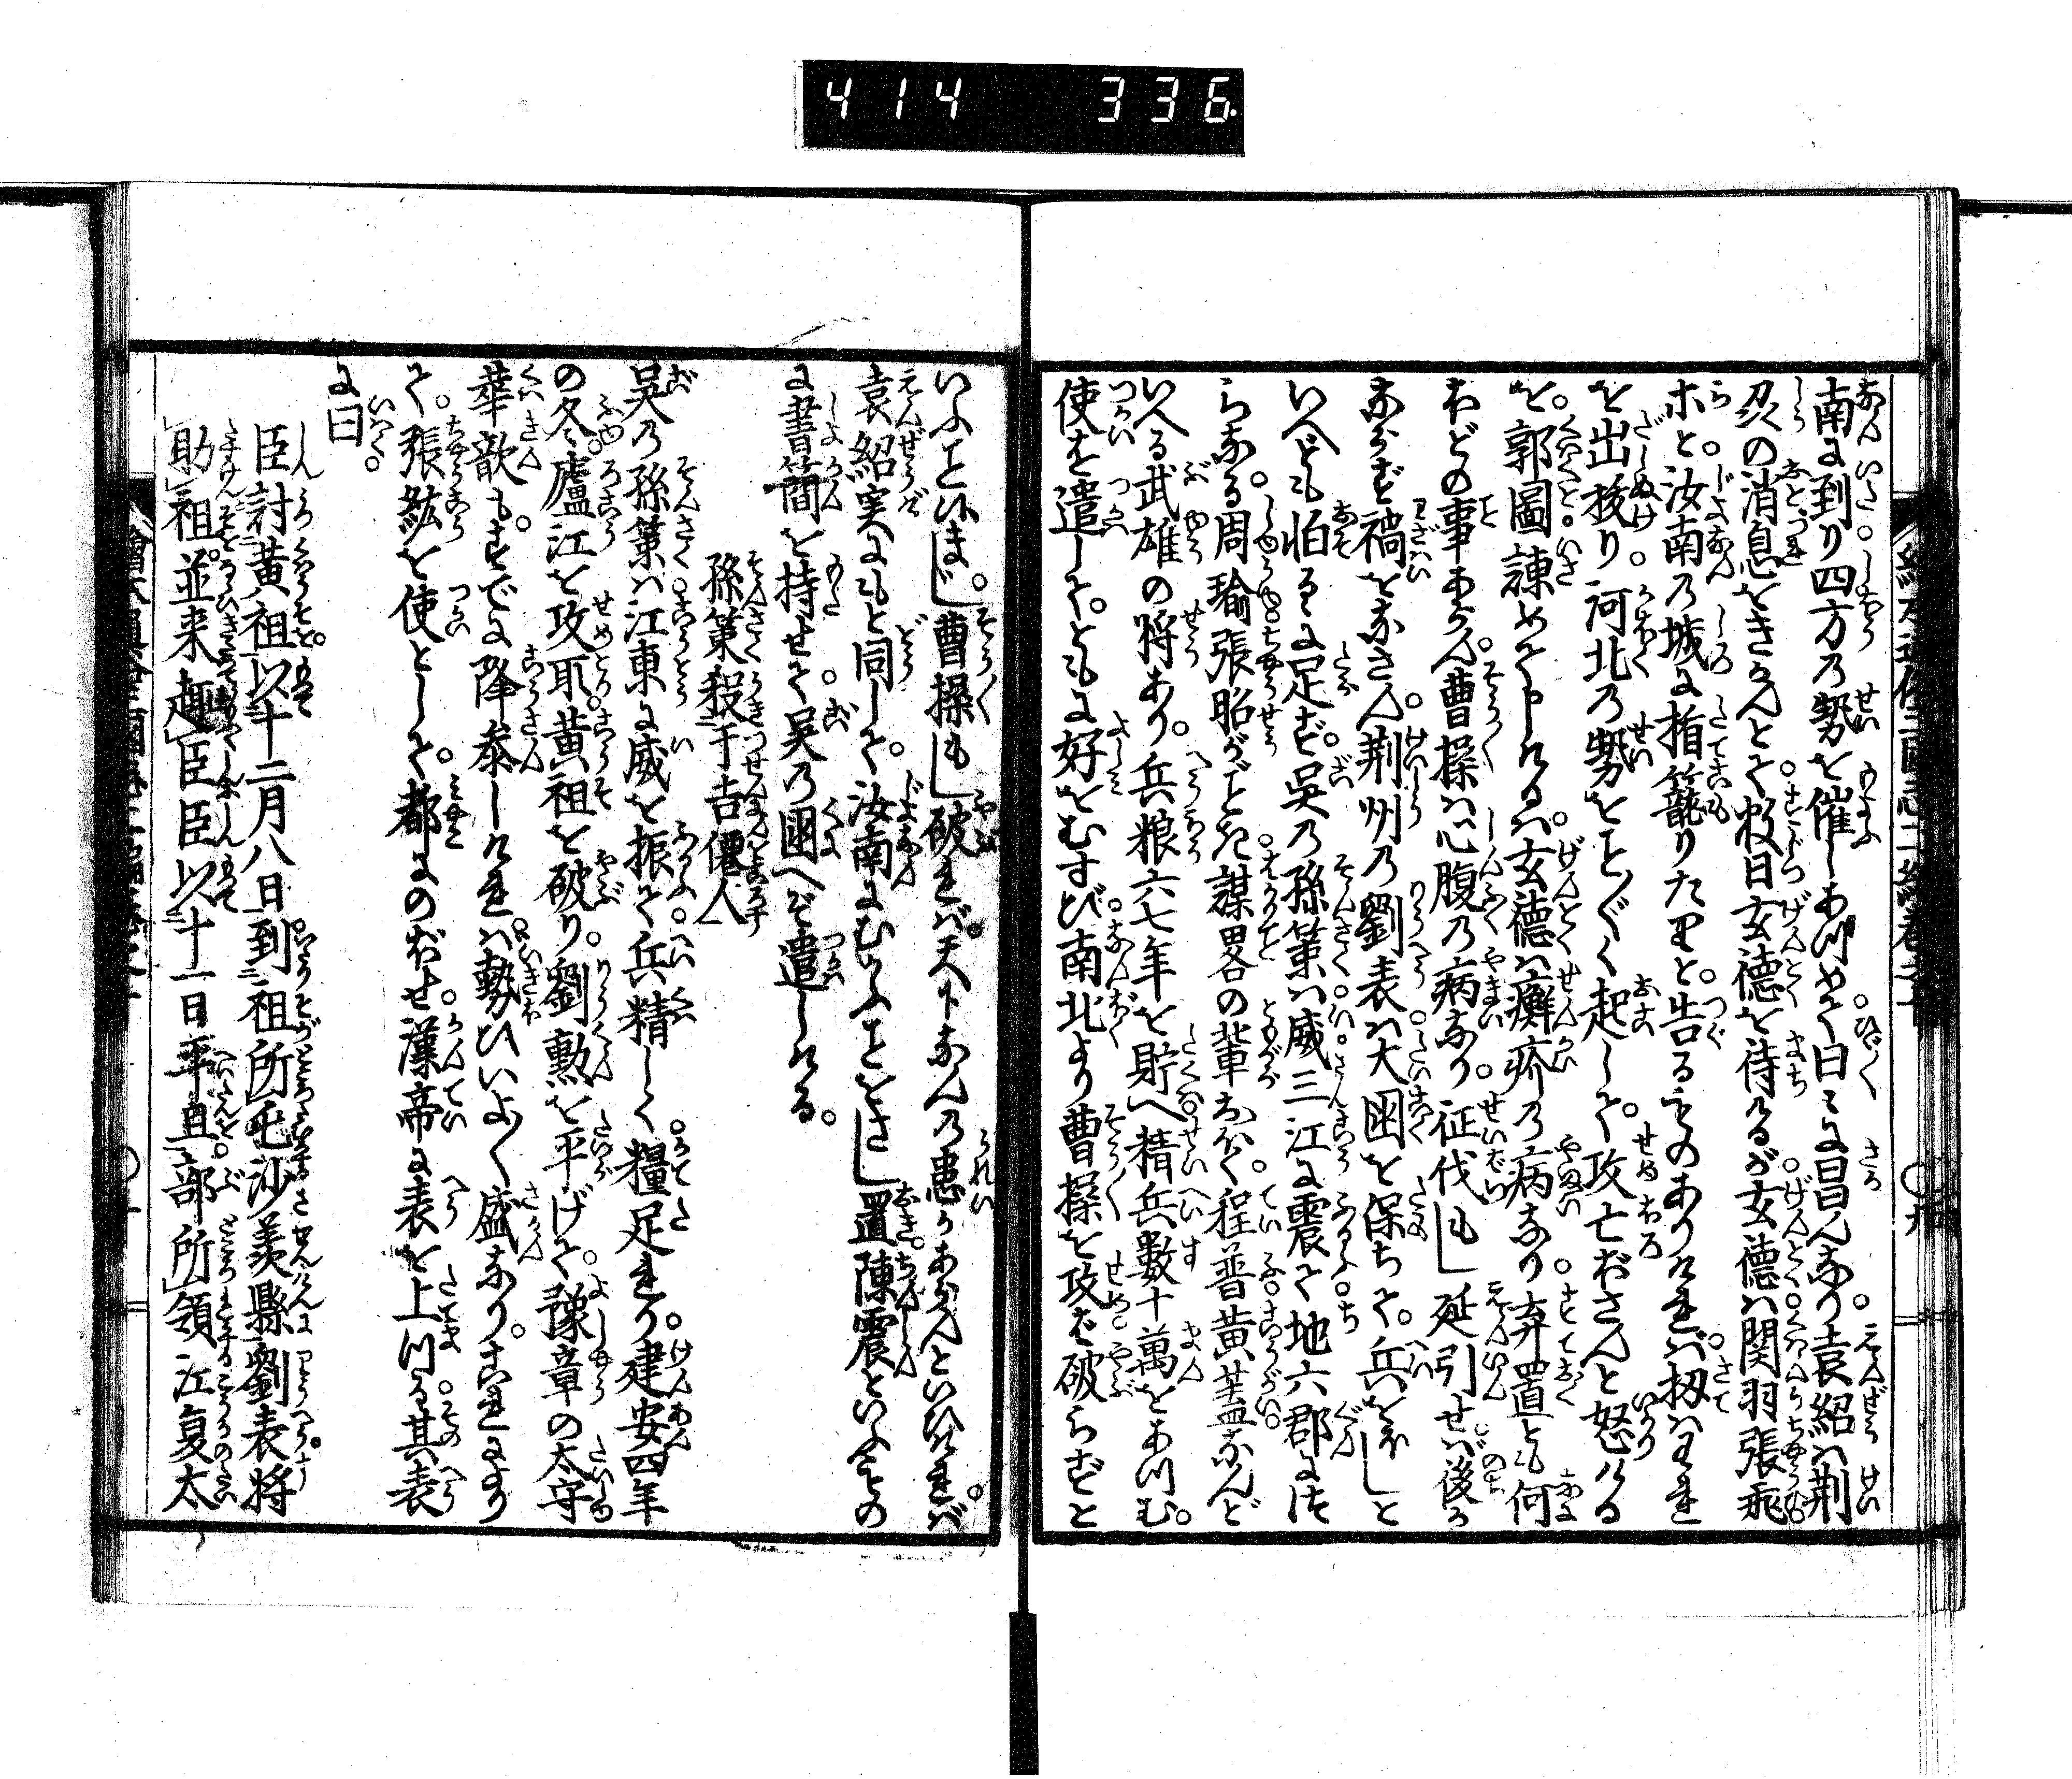 414 336
南に到り四方乃勢を催しあつめて曰々に昌んなり袁紹ハ荆
州の消息をきかんとて数日玄德を待るが玄德ハ関羽張飛
ホと汝南乃城に指篭りたりと告るものありければ扨ハわれ
を出拔り河北乃勢をことごとく起して攻亡ぼさんと怒ける
を郭圖諌めて申しけるハ玄德ハ癬疥乃病なり弃置とも何
ほどの事あらん曹操ハ心腹乃病なり征伐もし延引せバ後か
ならず禍をなさん荆州乃劉表ハ大国を保ちて兵をほしと
いへども怕るゝに足ず吴乃孫策ハ威三江に震て地六郡につ
らなる周瑜張昭がごとき謀畧の輩おほく程普黄盖なんど
いへる武雄の将あり兵粮六七年を貯へ精兵数十萬をあつむ
使を遣して。ともに好をむすび南北より曹操を攻ば破らずと
いふことハまじ曹操もし破れバ天下なんの患かあらんといひければ
袁紹実にもと同して汝南にむかふことをさし置陳震といふもの
に書簡を持せて吴乃国へぞ遣しける
孫策殺于吉僊人
吴乃孫策ハ江東に威を振て兵精しく糧足れり建安四年
の冬廬江を攻取黄祖を破り劉勲を平げて豫章の太守
華歆もすでに降参しければ勢ひいよ〱盛なりこれより
して張紘を使として都にのぼせ漢帝に表を上つる其表
に曰
臣討黄祖以十二月八日到祖所屯沙羨縣劉表将
助祖並来趣臣臣以十一日平旦部所領江夏太